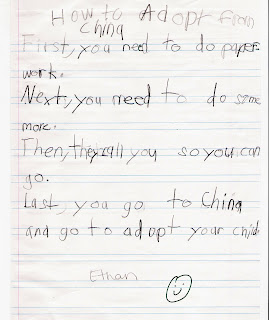 How to Adopt from
China
First, you need to do paper
work.
Next, you need to do some
more.
Then, they call you so you can
go.
Last, you go to China
and go to adopt your child
Ethan